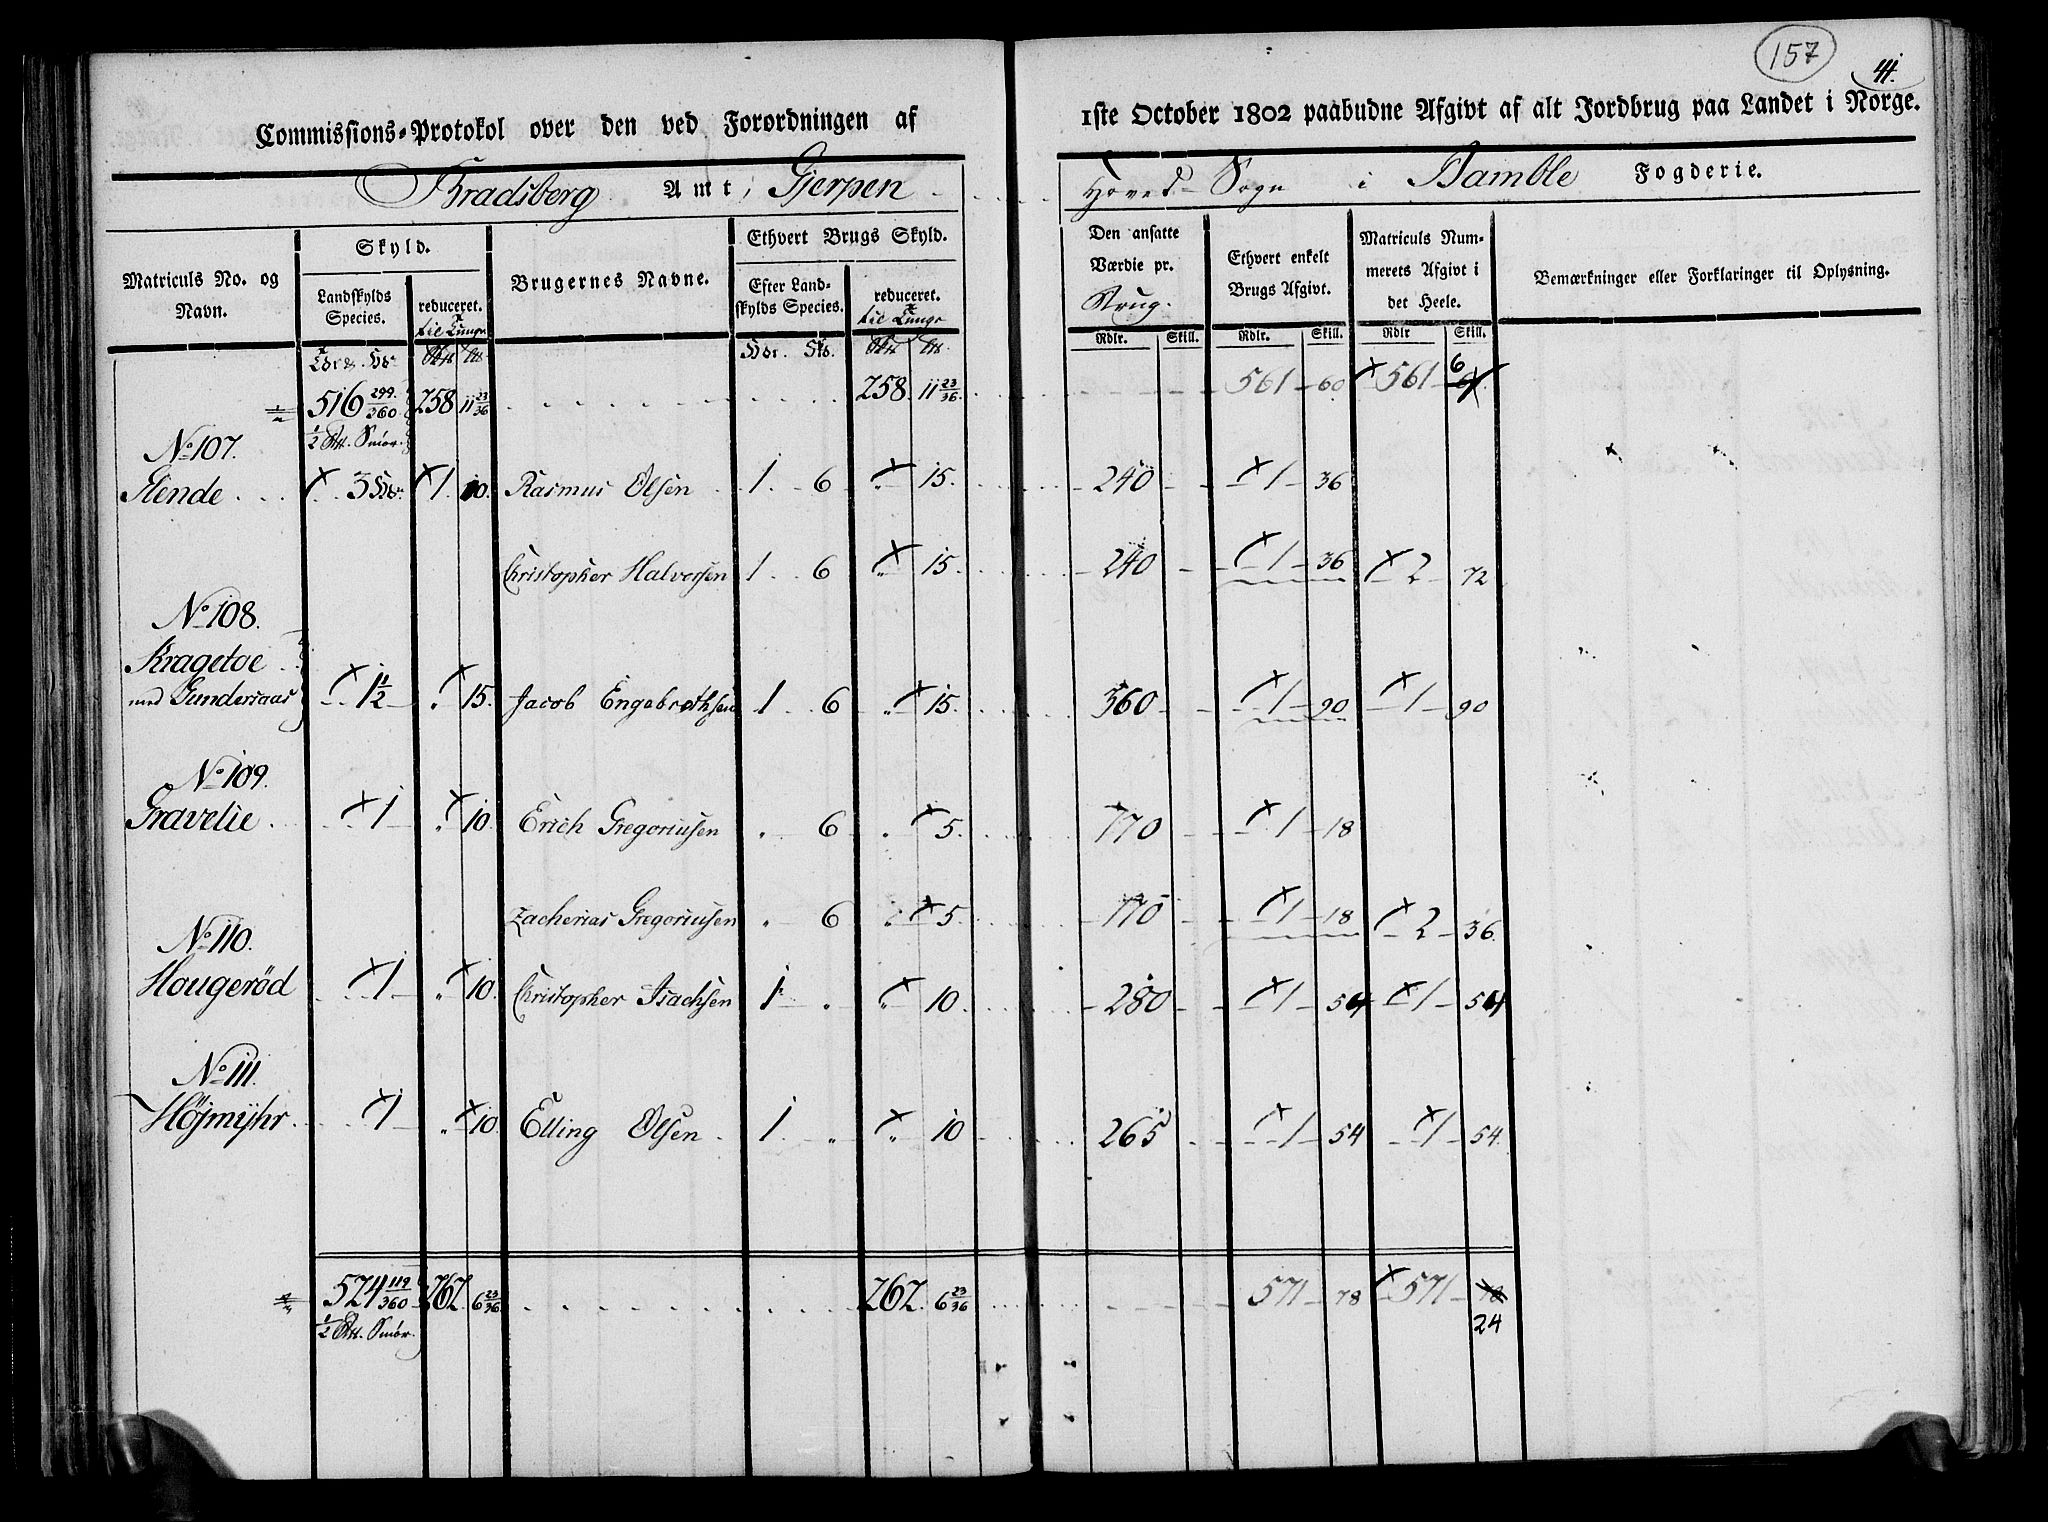 157
41.
Commissions-Protokol over den ved Forordningen af 1ste October 1802 paabudne Afgivt af alt Jordbrug paa Landet i Norge.
Bradsberg Amt, Gjerpen Hoved-Sogn i Bamble Fogderie.
Matriculs No. og Navn.
Skyld.
Landskylds Species.
reduceret. til Tunge
Brugernes Navne.
Ethvert Brugs Skyld.
Efter Landskylds Species.
reduceret. til Tunge
Den ansatte Værdie pr. Brug.
Rdlr. Skill.
Ethvert enkelt Brugs Afgivt.
Rdlr. Skill.
Matriculs Nummerets Afgivt i det Heele.
Rdlr Skill.
Bemærkninger eller Forklaringer til Oplysning.
516 299/360 258 11 23/36 258. 11 23/36 561 60 561 6
1/2 Smör.
No 107.
Slende 3 1 10. Rasmus Olsen 1 6 15. 240 1 36
Christopher Halvorsen 1 6 15. 240 1 36 2 72
No 108.
Kragetoe
med Gundersaas 1 1/2 15. Jacob Engebrethsen 1 6 15. 360 1 90 1 90
No 109.
Gravelie 1 10. Erich Gregoriusen 6 5. 170 1 18
Zacherias Gregoriusen 6 5. 170 1 18 2 36.
No 110.
Hougeröd 1 10. Christopher Isachsen 1 10. 280 1 54 1 54
No 111.
Höjmyhr 1 10. Elling Olsen 1 10 265 1 54 1 54.
524 119/360 262. 6 23/36 262. 6 23/36 571 78 571 78
1/2 Smör. 24